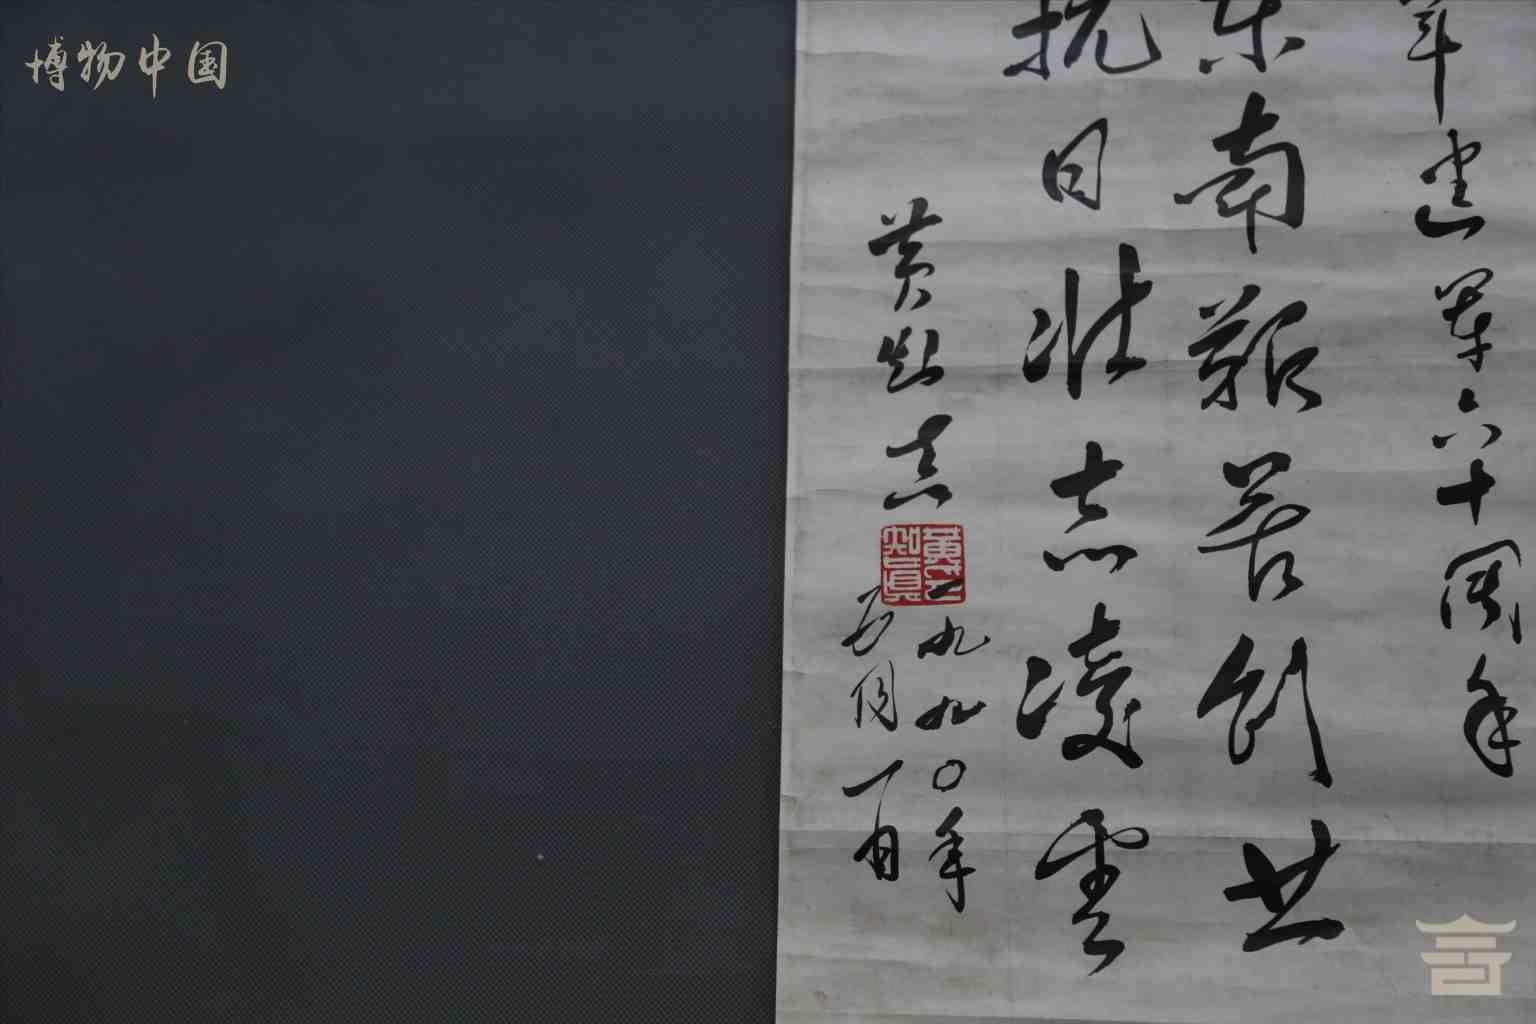 博物中国
军建军六十周年
东南艰苦创业
抗日壮志凌云
黄知真
一九九〇年
五月一日
黄知真